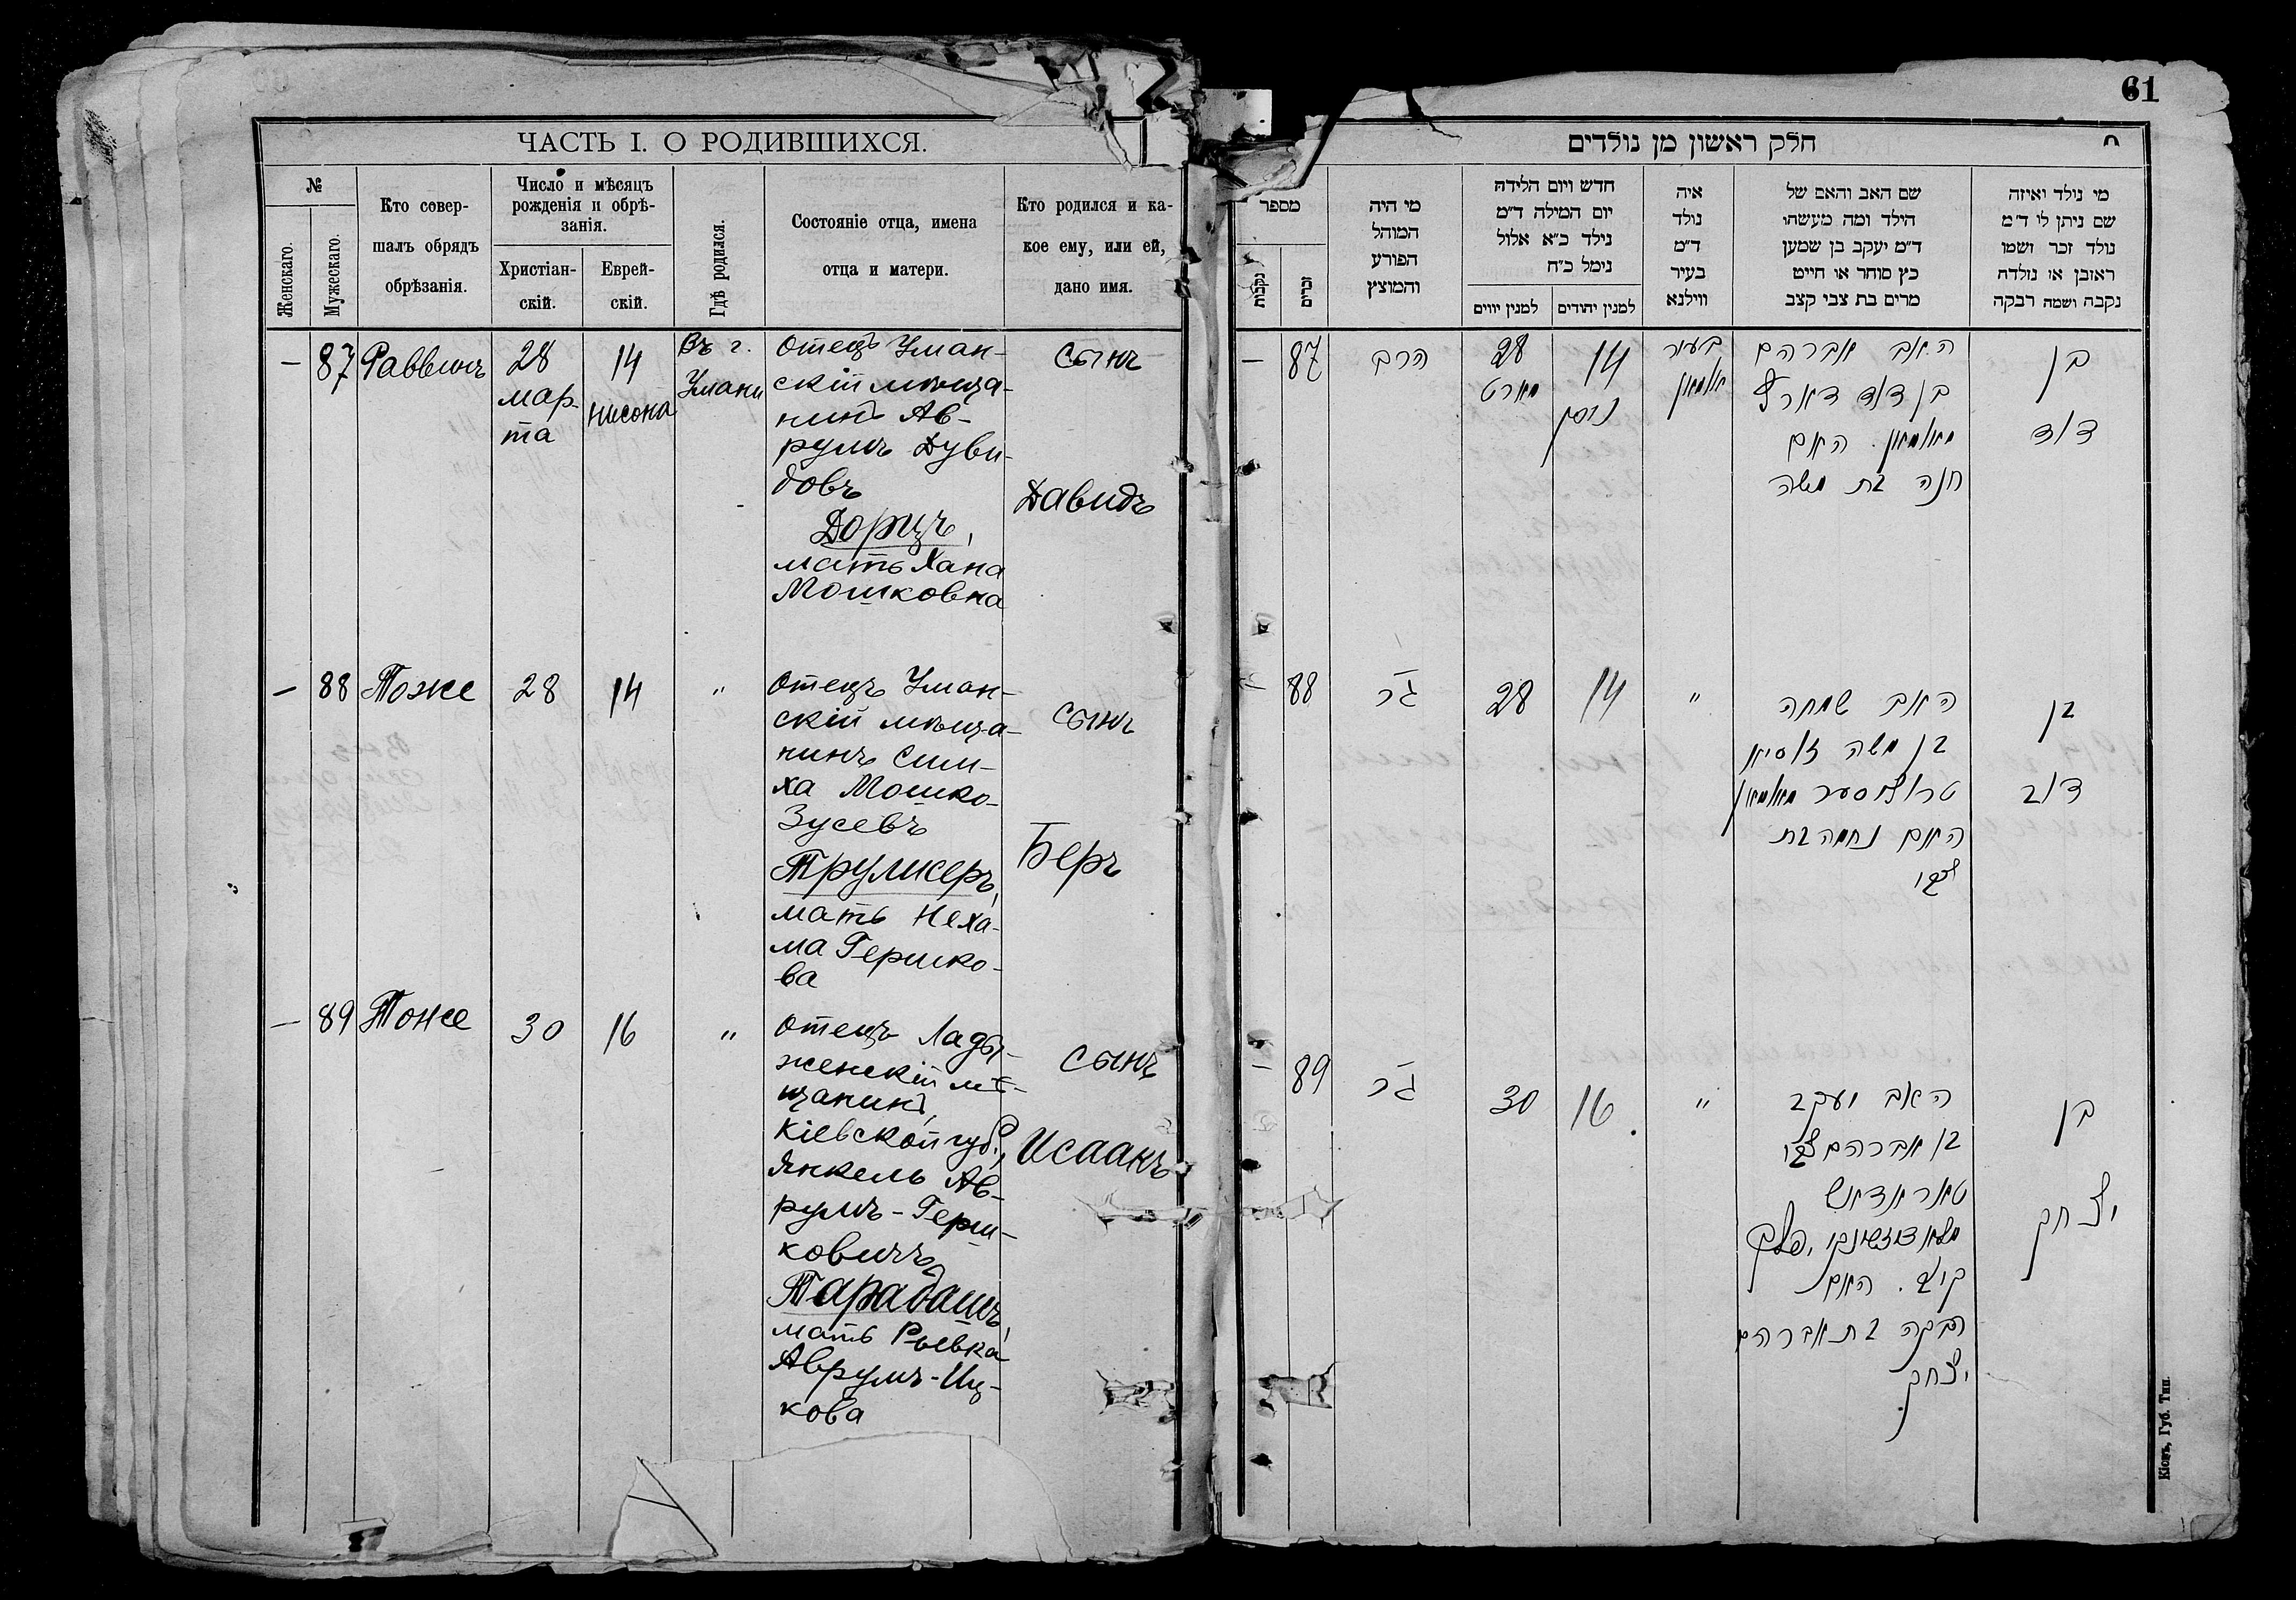 61
ЧАСТЬ I. О РОДИВШИХСЯ.
№
Женскаго.
Мужескаго.
Кто совер-
шалъ обрядъ
обрѣзанія.
Число и мѣсяцъ
рожденія и обрѣ-
занія.
Христіан-
скій.
Еврей-
скій.
Гдѣ родился.
Состояніе отца, имена
отца и матери.
Кто родился и ка-
кое ему, или ей,
дано имя.
— 87 Раввинъ
28
мар-
та
14
нисона
Въ г.
Умани
Отецъ Уман-
скій мѣща-
нинъ Ав-
румъ Дуви-
довъ
Дорцъ,
мать Хана
Мошковна
Сынъ
Давидъ
— 88 Тоже 28 14 "
Отецъ Уман-
скій мѣща-
нинъ Сим-
ха Мошко-
Зусевъ
Трулисеръ,
мать Неха-
ма Гершко-
ва
Сынъ
Беръ
— 89 Тоже 30 16 "
Отецъ Лады-
женскій мѣ-
щанинъ,
Кіевской губ.,
Янкель Ав-
румъ-Герш-
ковичъ
Тарадашъ,
мать Ривка
Аврумъ-Иц-
кова
Сынъ
Исаакъ
חלק ראשון מן נולדים
מספר
נקבות
זכרים
מי היה
המוהל
הפורע
והמוצץ
חדש ויום הלידה
יום המילה ד"מ
נילד כ"א אלול
נימל כ"ח
למנין יווים
למנין יהודים
איה
נולד
ד"מ
בעיר
ווילנא
שם האב והאם של
הילד ומה מעשהו
ד"מ יעקב בן שמען
כץ סוחר או חייט
מרים בת צבי קצב
מי נילד ואיזה
שם ניתן לו ד"מ
נולד זכר ושמו
ראובן או נולדה
נקבה ושמה רבקה
— 87
הרב
28
מארט
14
ניסן
בעיר
אומאן
האב אברהם
בן דוד דארץ
מאומאן. האם
חנה בת משה
בן
דוד
— 88
הנ"ל
28
14
"
האב שמחה
בן משה זוסיא
מאומאן
האם נחמה בת
צבי
בן
דוב
— 89
הנ"ל
30
16
"
האב יעקב
בן אברהם צבי
טאראדאש
פלך
קיוב. האם
רבקה בת אברהם
יצחק
בן
יצחק
Кіевъ, Губ. Тип.